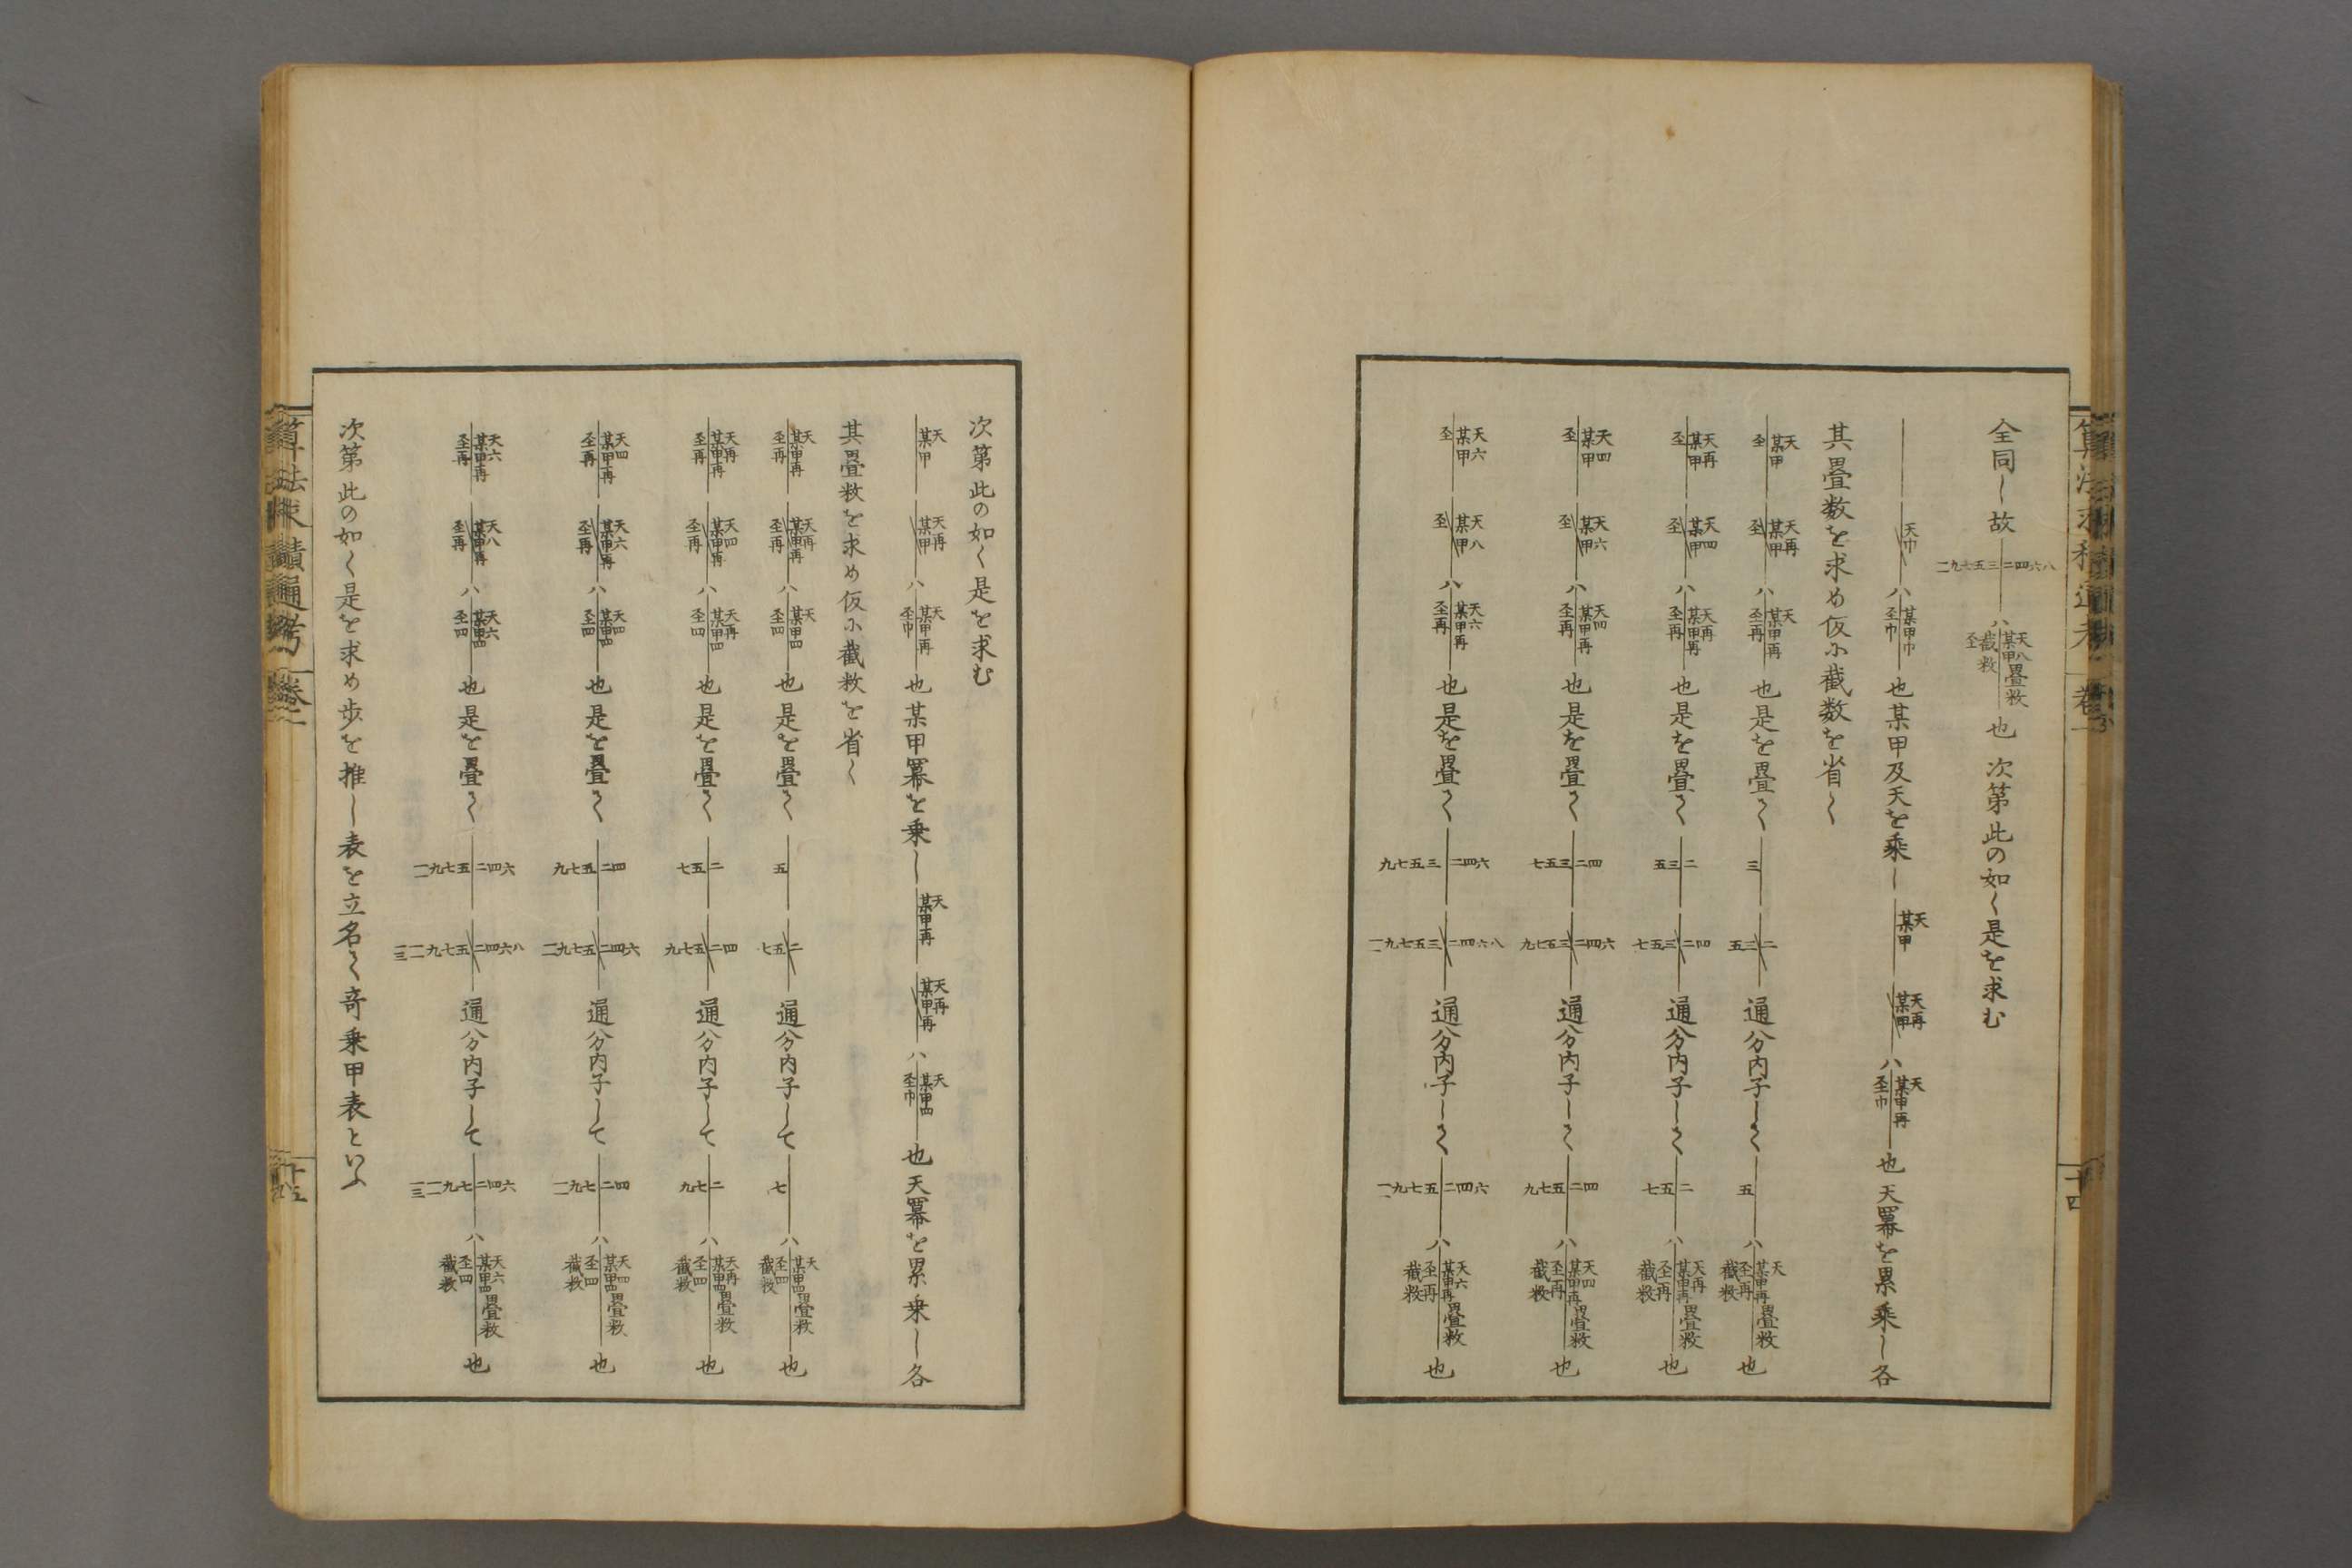 全同し故 一二九七五三二四六八 ハ 天八 某甲 畳数 至 截数 也 次第此の如く是を求む
天巾 ハ 某甲巾 至巾 也 某甲及天を乗し 天 某甲 天再 某甲 ハ 天 某甲再 至巾 也 天冪を累乗し各
其畳数を求め仮に截数を省く
天 某甲 至 天再 某甲 至 ハ 天 某甲再 至再 也 是を畳て 三 五三二 通分内子して 五 ハ 天 某甲再 畳数 至再 截数 也
天再 某甲 至 天四 某甲 至 ハ 天再 某甲再 至再 也 是を畳て 五三二 七五三二四 通分内子して 七五二 ハ 天再 某甲再 畳数 至再 截数 也
天四 某甲 至 天六 某甲 至 ハ 天四 某甲再 至再 也 是を畳て 七五三二四 九七五三二四六 通分内子して 九七五二四 ハ 天四 某甲再 畳数 至再 截数 也
天六 某甲 至 天八 某甲 至 ハ 天六 某甲再 至再 也 是を畳て 九七五三二四六 一一九七五三二四六八 通分内子して 一一九七五二四六 ハ 天六 某甲再 畳数 至再 截数 也
算法求積通考 巻二
十四
次第此の如く是を求む
天 某甲 天再 某甲 ハ 天 某甲再 至巾 也 某甲冪を乗し 天 某甲再 天再 某甲再 ハ 天 某甲四 至巾 也 天冪を累乗し各
其畳数を求め仮に截数を省く
天 某甲再 至再 天再 某甲再 至再 ハ 天 某甲四 至四 也 是を畳て 五 七五二 通分内子して 七 ハ 天 某甲四 畳数 至四 截数 也
天再 某甲再 至再 天四 某甲再 至再 ハ 天再 某甲四 至四 也 是を畳て 七五二 九七五二四 通分内子して 九七二 ハ 天再 某甲四 畳数 至四 截数 也
天四 某甲再 至再 天六 某甲再 至再 ハ 天四 某甲四 至四 也 是を畳て 九七五二四 一一九七五二四六 通分内子して 一一九七二四 ハ 天四 某甲四 畳数 至四 截数 也
天六 某甲再 至再 天八 某甲再 至再 ハ 天六 某甲四 至四 也 是を畳て 一一九七五二四六 一三一一九七五二四六八 通分内子して 一三一一九七二四六 ハ 天六 某甲四 畳数 至四 截数 也
次第此の如く是を求め歩を推し表を立名て奇乗甲表といふ
算法求積通考 巻二
十五